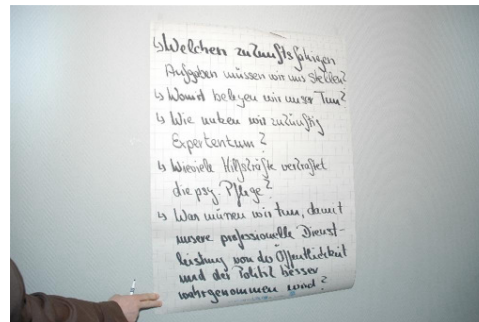 ↳ Welchen zukunftsfähigen
Aufgaben müssen wir uns stellen?
↳ Womit belegen wir unser Tun?
↳ Wie nutzen wir zukünftig
Expertentum?
↳ Wieviele Hilfskräfte verkraftet
die psy. Pflege?
↳ Was müssen wir tun, damit
unsere professionelle Dienst-
leistung von der Öffentlichkeit
und der Politik besser
wahrgenommen wird?